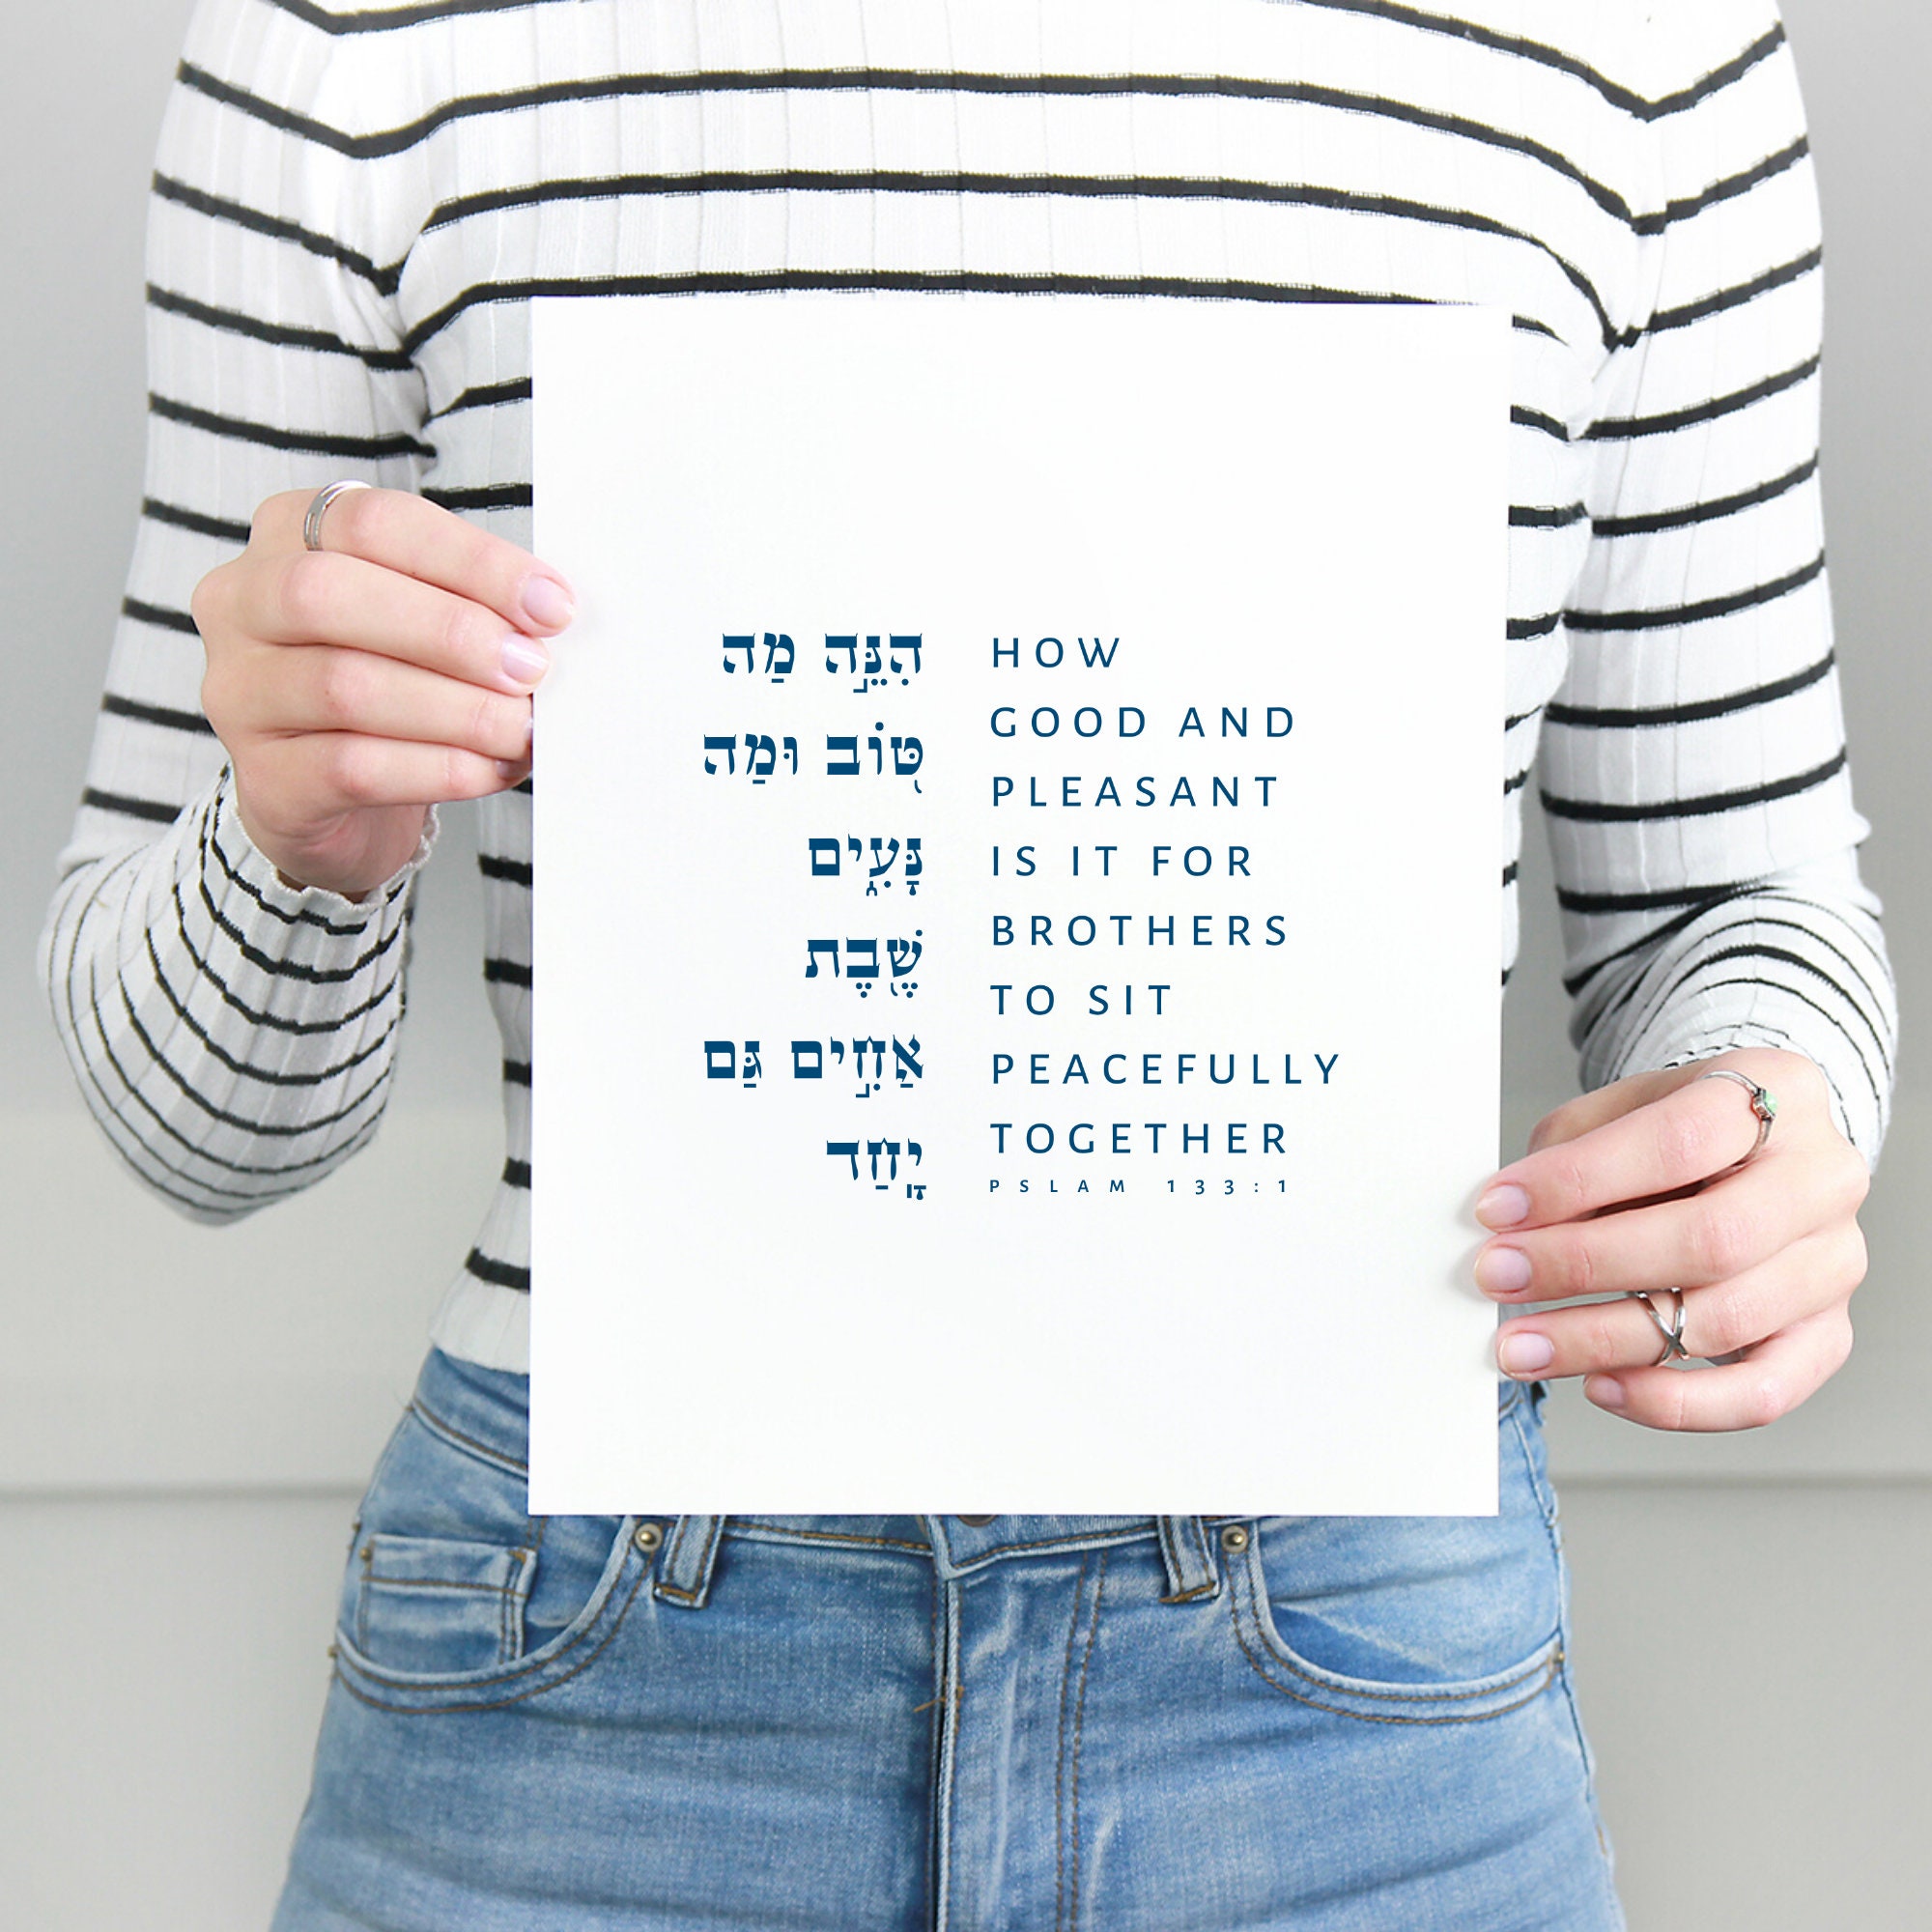 הִנֵּ֣ה מַה
טּ֭וֹב וּמַה
נָּעִ֑ים
שֶׁ֖בֶת
אַחִ֣ים גַּם
יָֽחַד
HOW
GOOD AND
PLEASANT
IS IT FOR
BROTHERS
TO SIT
PEACEFULLY
TOGETHER
PSLAM 133:1